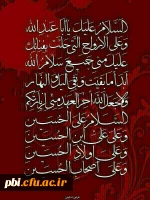 السلام علیک یا اباعبدالله
وعلی الارواح التی حلت بفنائک
علیک منی جمیع سلام الله
ابدا ما بقیت و بقی اللیل والنهار
ولا جعله الله آخر العهد منی لزیارتکم
السلام علی الحسین
وعلی علی ابن الحسین
وعلی اولاد الحسین
وعلی اصحاب الحسین
pbl.cfu.ac.ir